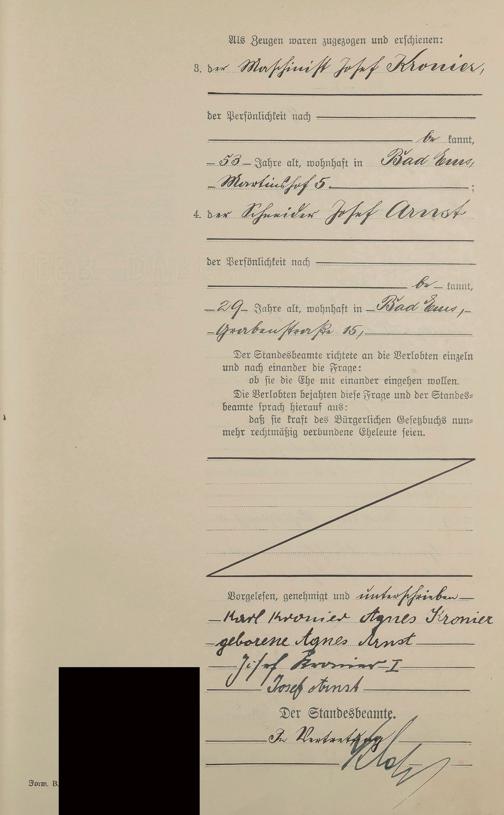 Als Zeugen waren zugezogen und erschienen:
3. der Maschinist Josef Kronier,
der Persönlichkeit nach
be kannt,
53 Jahre alt, wohnhaft in Bad Ems,
Martinshof 5.;
4. der Schneider Josef Arnst
der Persönlichkeit nach
be kannt,
29 Jahre alt, wohnhaft in Bad Ems,
Grabenstraße 15,
Der Standesbeamte richtete an die Verlobten einzeln
und nach einander die Frage:
ob sie die Ehe mit einander eingehen wollen.
Die Verlobten bejahten diese Frage und der Standes-
beamte sprach hierauf aus:
daß sie kraft des Bürgerlichen Gesetzbuchs nun-
mehr rechtmäßig verbundene Eheleute seien.
Vorgelesen, genehmigt und unterschrieben
Karl Kronier Agnes Kronier
geborene Agnes Arnst
Josef Kronier I
Josef Arnst
Der Standesbeamte.
In Vertretung
Form. B.